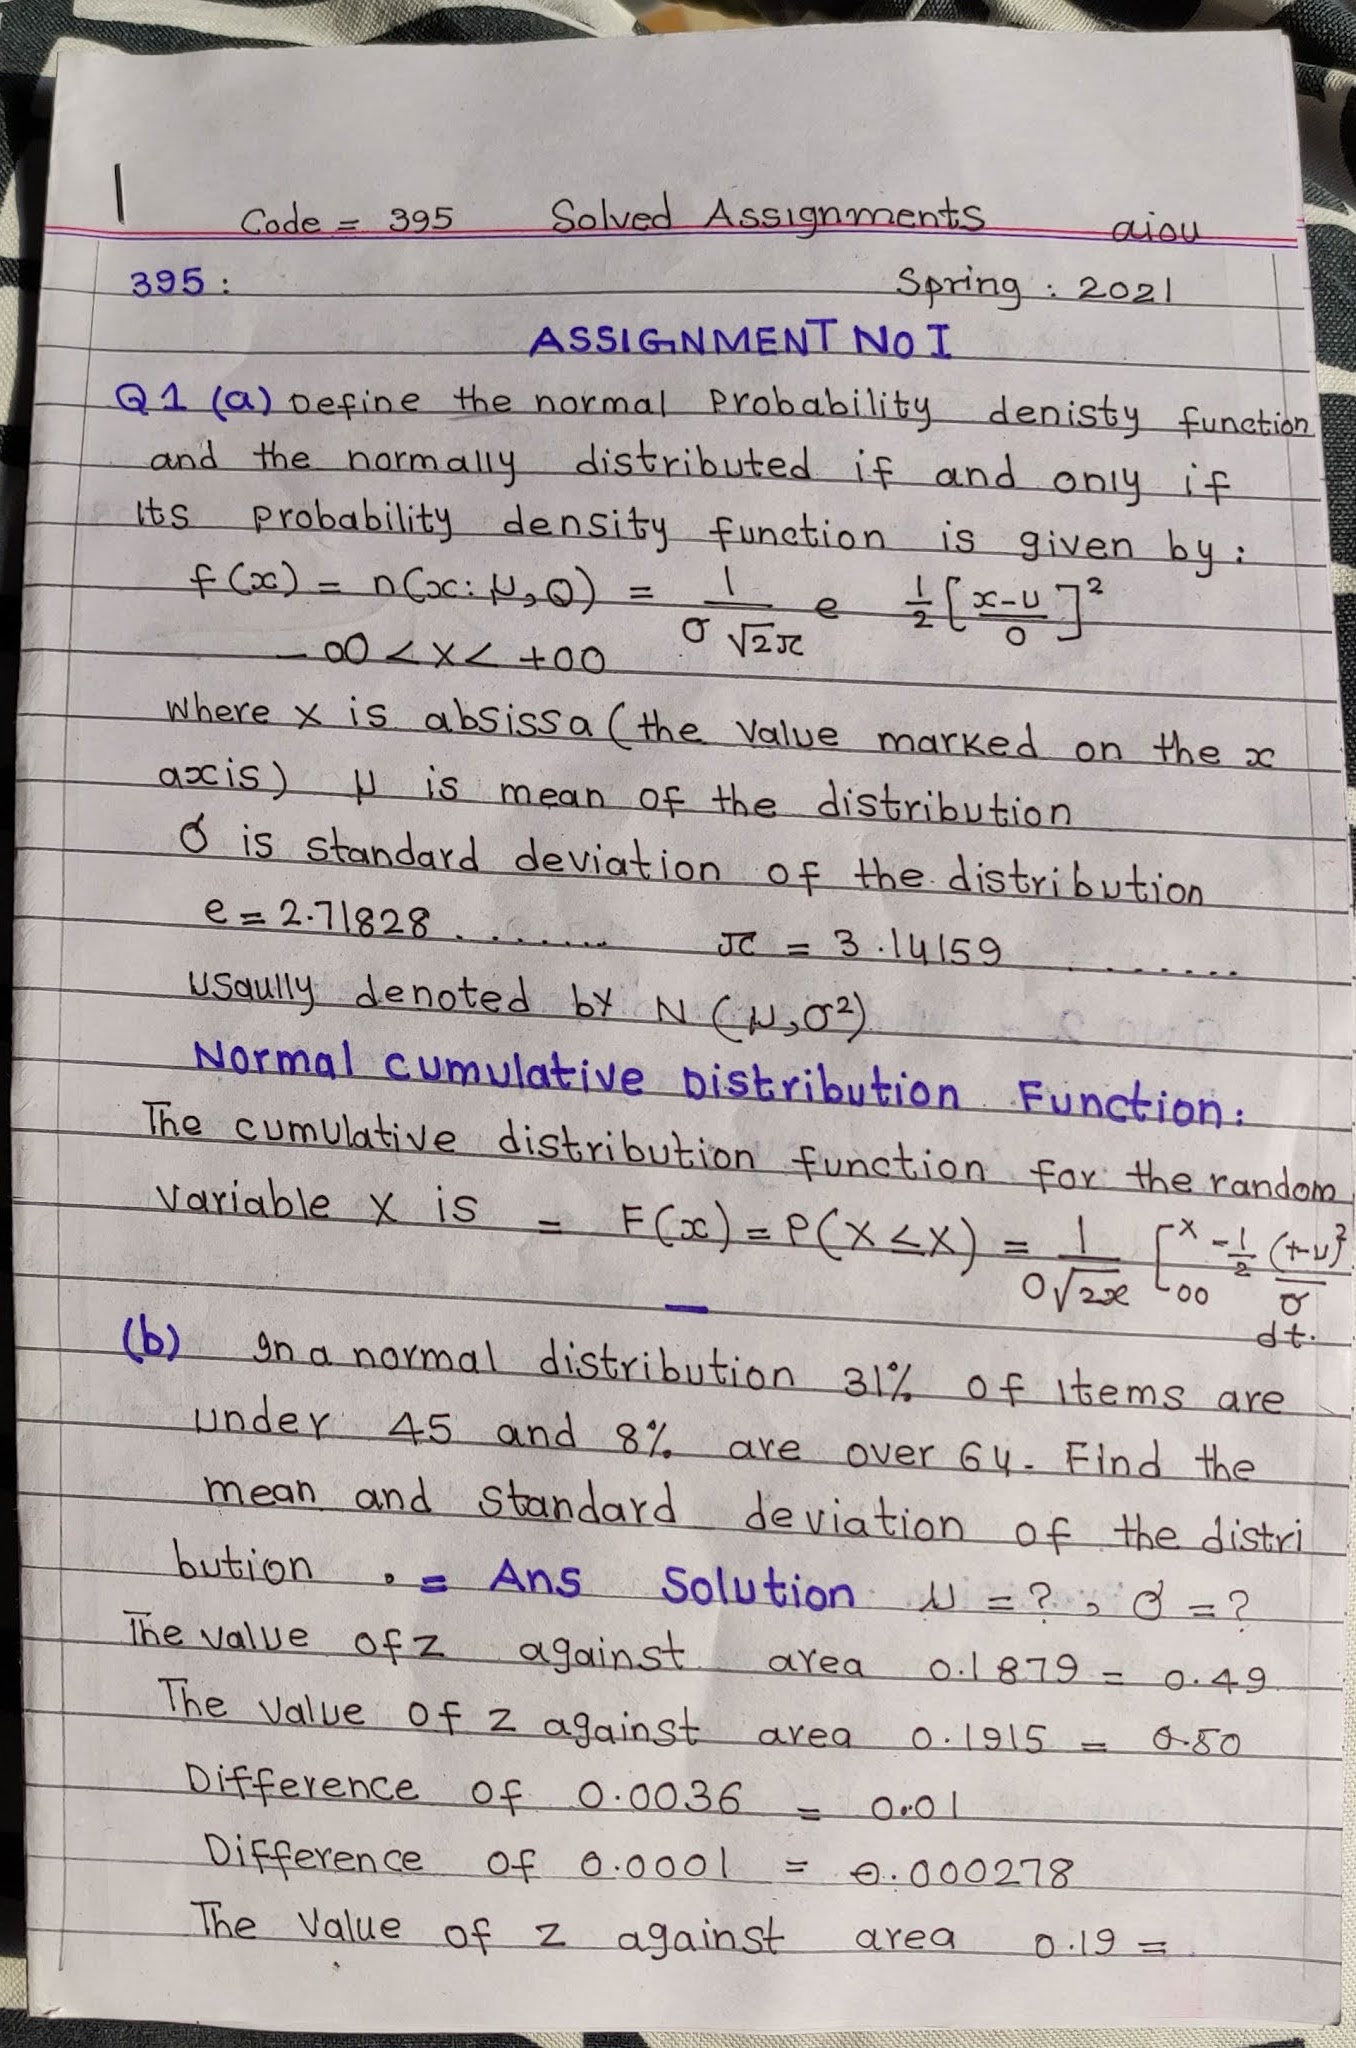 1
Code = 395 Solved Assignments aiou
395 : Spring : 2021
ASSIGNMENT NO I
Q1 (a) Define the normal Probability denisty function
and the normally distributed if and only if
Its probability density function is given by :
f(x) = n(x: μ, Q) = 1/σ√2π e 1/2 [x-u/0]²
-∞ < X < +∞
where x is absissa (the value marked on the x
axis) μ is mean of the distribution
σ is standard deviation of the distribution
e = 2.71828 ........ π = 3.14159 ........
usaully denoted by N (μ, σ²)
Normal cumulative Distribution Function:
The cumulative distribution function for the random
variable X is = F(x) = P(X ≤ X) = 1/0√2x [x -∞ -1/2 (t-u)²/σ
dt.
(b) In a normal distribution 31% of Items are
under 45 and 8% are over 64. Find the
mean and standard deviation of the distri
bution . = Ans Solution μ = ? , σ = ?
The value of z against area 0.1879 = 0.49
The value of z against area 0.1915 = 0.50
Difference of 0.0036 = 0.01
Difference of 0.0001 = 0.000278
The Value of z against area 0.19 =